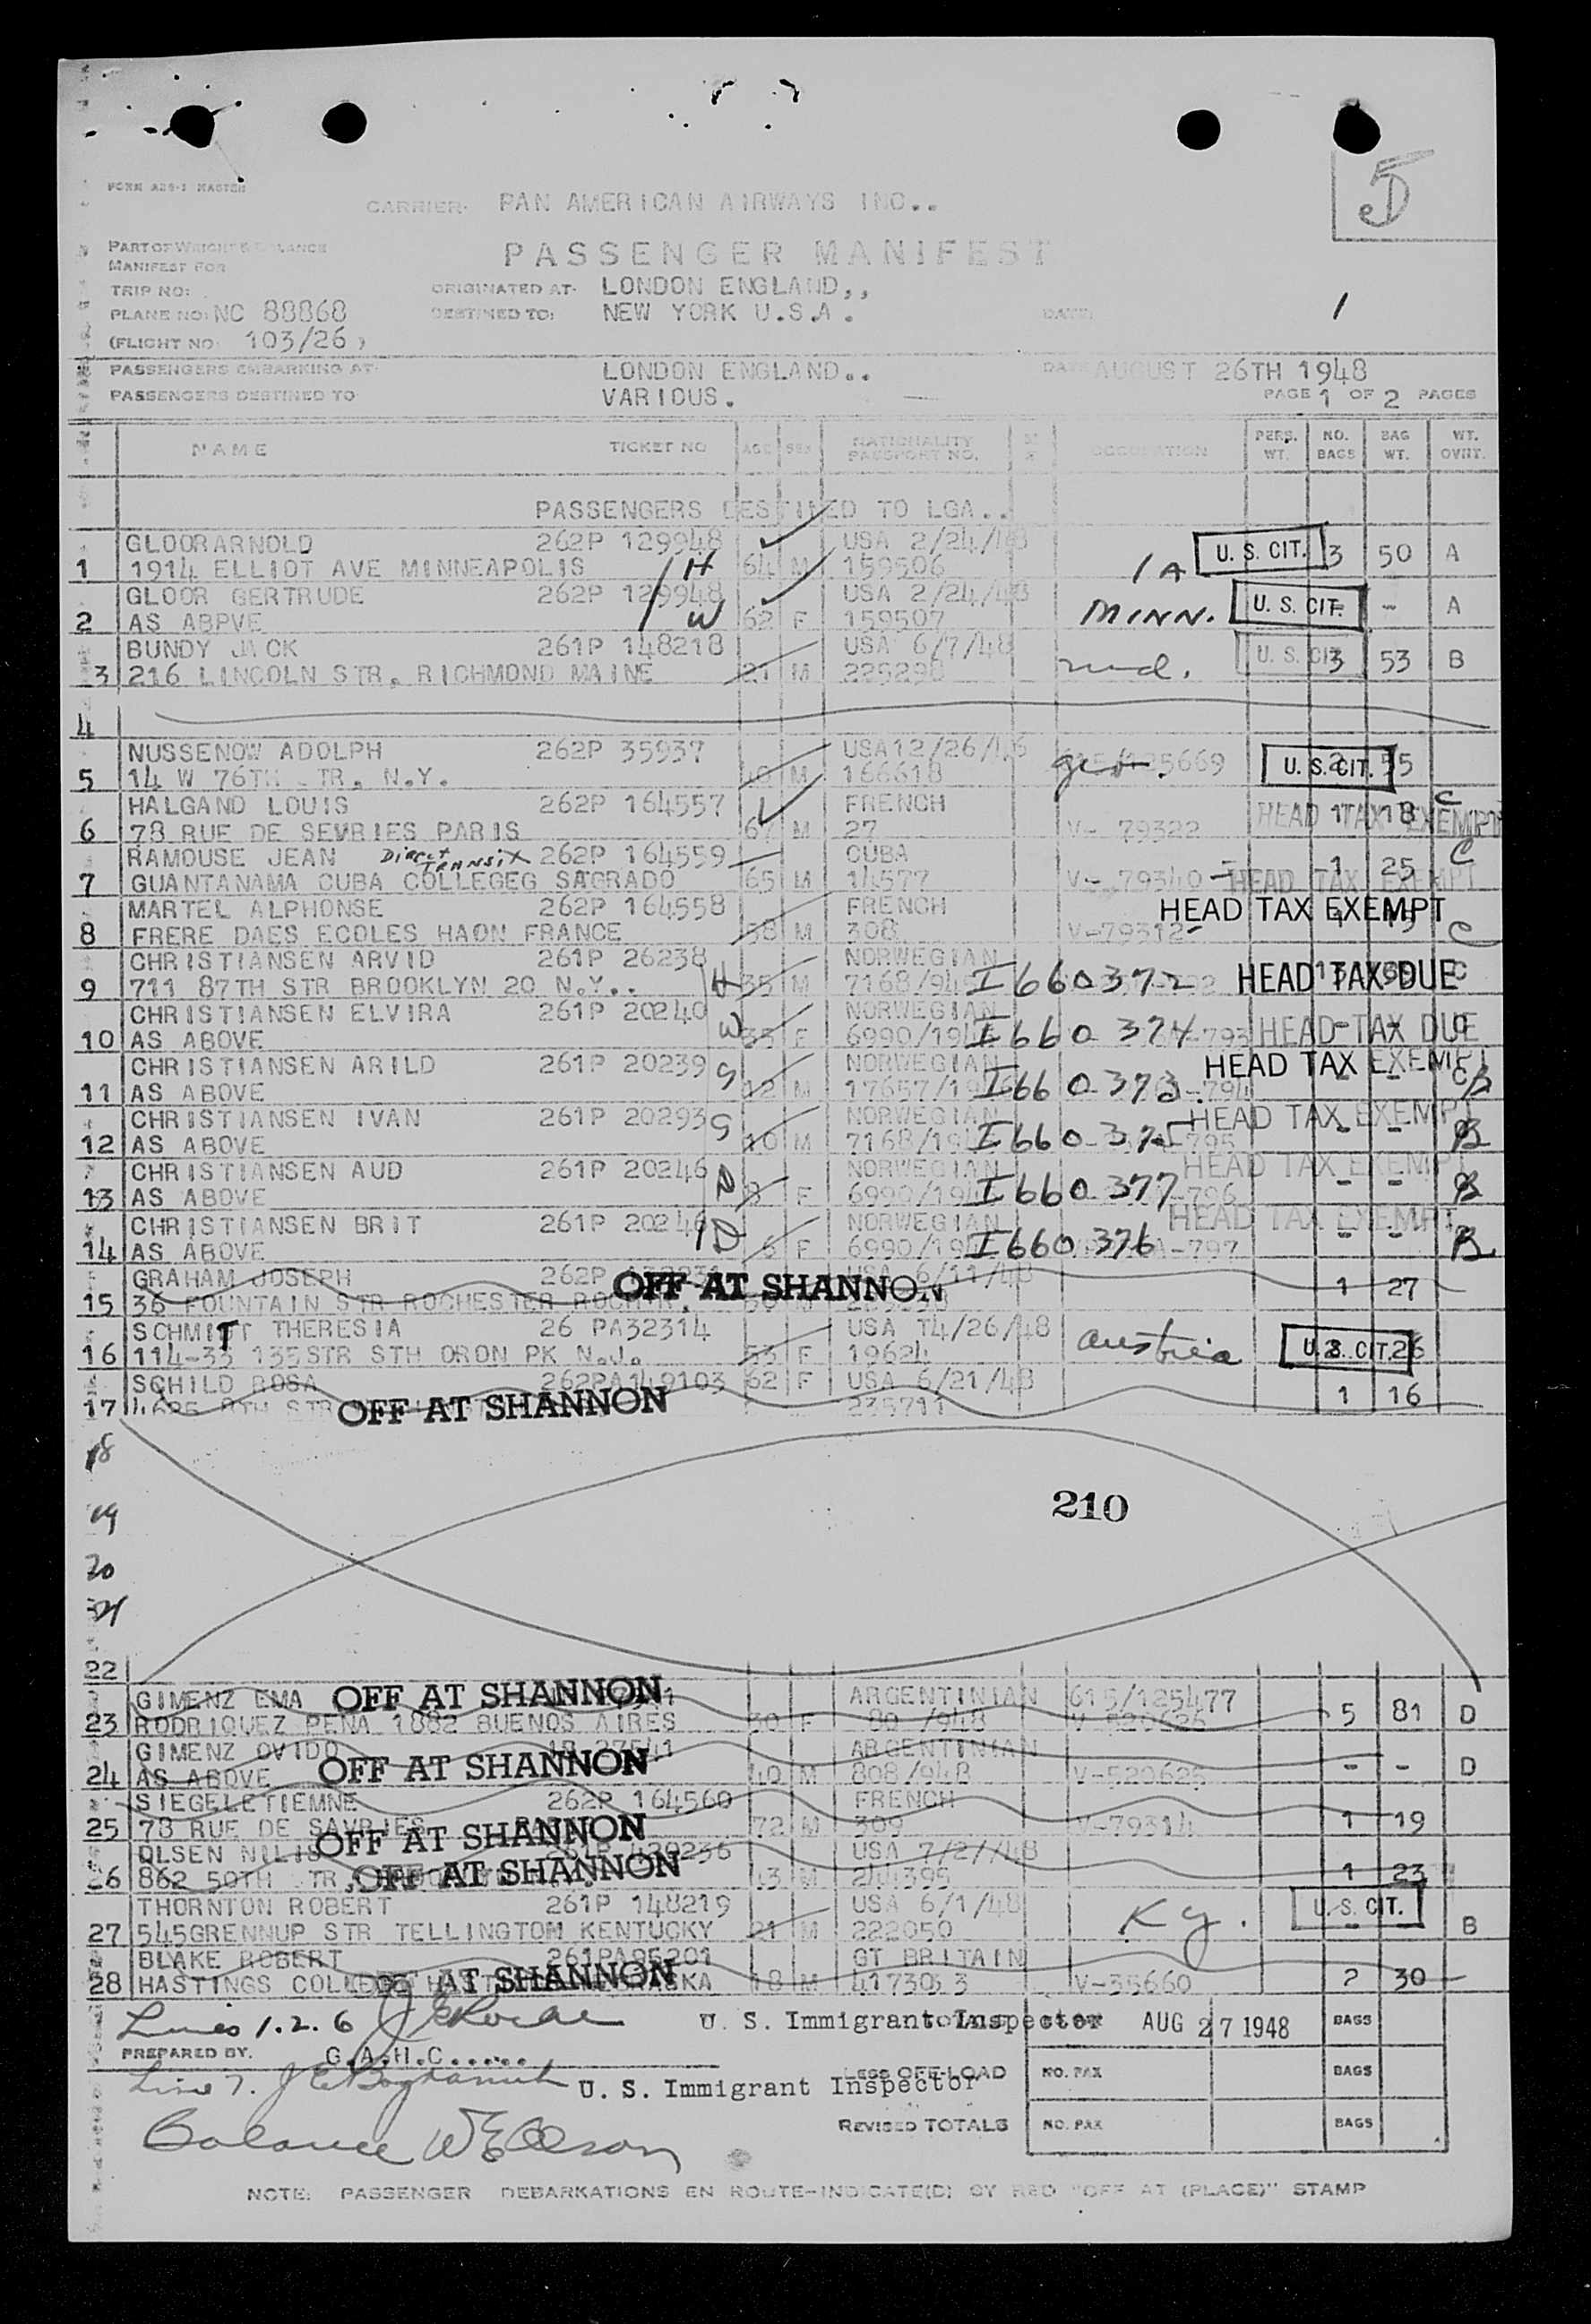 FORM A29-1 MASTER
5
D
CARRIER- PAN AMERICAN AIRWAYS INC..
PART OF WEIGHT & BALANCE
MANIFEST FOR
PASSENGER MANIFEST
TRIP NO:
ORIGINATED AT- LONDON ENGLAND,,
PLANE NO: NC 88868
DESTINED TO: NEW YORK U.S.A.
DATE: 1
(FLIGHT NO 103/26 )
PASSENGERS EMBARKING AT- LONDON ENGLAND.. DATE AUGUST 26TH 1948
PASSENGERS DESTINED TO VARIOUS. PAGE 1 OF 2 PAGES
NAME TICKET NO AGE SEX NATIONALITY PASSPORT NO. OCCUPATION PERS. WT. NO. BAGS BAG WT. WT. OVHT.
PASSENGERS DESTINED TO LGA..
GLOORARNOLD 262P 129948 USA 2/24/48
1 1914 ELLIOT AVE MINNEAPOLIS H 64 M 159506 IA U. S. CIT. 3 50 A
GLOOR GERTRUDE 262P 129948 USA 2/24/48
2 AS ABPVE W 62 F 159507 MINN. U. S. CIT. - - A
BUNDY JACK 261P 148218 USA 6/7/48
3 216 LINCOLN STR, RICHMOND MAINE 21 M 225298 U. S. CIT. 3 53 B
4
NUSSENOW ADOLPH 262P 35937 USA12/26/46
5 14 W 76TH STR, N.Y. M 166618 U. S. CIT. 2 55
HALGAND LOUIS 262P 164557 FRENCH
6 78 RUE DE SEVRIES PARIS 67 M 27 V- 79322 HEAD TAX EXEMPT 1 18 C
RAMOUSE JEAN DIRECT TRANSIT 262P 164559 CUBA
7 GUANTANAMA CUBA COLLEGEG SAGRADO 65 M 14577 V- 79340 - HEAD TAX EXEMPT 1 25 C
MARTEL ALPHONSE 262P 164558 FRENCH
8 FRERE DAES ECOLES HAON FRANCE 58 M 308 V-79312- HEAD TAX EXEMPT 1 15 C
CHRISTIANSEN ARVID 261P 26238 NORWEGIAN
9 711 87TH STR BROOKLYN 20 N.Y.. H 35 M 7168/94 I660372 HEAD TAX DUE C
CHRISTIANSEN ELVIRA 261P 20240 NORWEGIAN
10 AS ABOVE W 35 F 6990/19 I660374 -793 HEAD TAX DUE - - C
CHRISTIANSEN ARILD 261P 20239 NORWEGIAN
11 AS ABOVE S 12 M 17657/19 I660373 -794 HEAD TAX EXEMPT - - B
CHRISTIANSEN IVAN 261P 20293 NORWEGIAN
12 AS ABOVE S 10 M 7168/19 I660375 -795 HEAD TAX EXEMPT - - B
CHRISTIANSEN AUD 261P 20246 NORWEGIAN
13 AS ABOVE D 8 F 6990/19 I660377 -796 HEAD TAX EXEMPT - - B
CHRISTIANSEN BRIT 261P 20246 NORWEGIAN
14 AS ABOVE D 6 F 6990/19 I660376 -797 HEAD TAX EXEMPT - - B
GRAHAM JOSEPH 262P OFF AT SHANNON USA 6/11/48
15 36 FOUNTAIN STR ROCHESTER M 1 27
SCHMITT THERESIA 26 PA32314 USA T4/26/48
16 114-33 135STR STH ORON PK N.J. 53 F 19624 Austria U. S. CIT. 26
SCHILD ROSA 262PA149103 62 F USA 6/21/48
17 4625 8TH STR OFF AT SHANNON 235711 1 16
18
19
210
20
21
22
GIMENZ EMA OFF AT SHANNON ARGENTINIAN 615/125477
23 RODRIQUEZ PENA 1882 BUENOS AIRES 30 F 80 /948 V-520626 5 81 D
GIMENZ OVIDO ARGENTINIAN
24 AS ABOVE OFF AT SHANNON 40 M 808/948 V-520625 - - D
SIEGELETIEMNE 262P 164560 FRENCH
25 78 RUE DE SAVRIES OFF AT SHANNON 72 M 309 V-79314 1 19
OLSEN NILIS USA 7/2//48
26 862 50TH STR OFF AT SHANNON 43 M 244395 1 23
THORNTON ROBERT 261P 148219 USA 6/1/48
27 545GRENNUP STR TELLINGTOM KENTUCKY 21 M 222050 Ky. U. S. CIT. - - B
BLAKE ROBERT 261PA95201 GT BRITAIN
28 HASTINGS COLLEGE OFF AT SHANNON 18 M 417303 3 V-35660 2 30
Lines 1. 2. 6 U. S. Immigrant Inspector AUG 27 1948 BAGS
PREPARED BY. G.A.H.C.....
Line 7. U. S. Immigrant Inspector LESS OFF-LOAD NO. PAX BAGS
Balance W E Olson REVISED TOTALS NO. PAX BAGS
NOTE: PASSENGER DEBARKATIONS EN ROUTE-INDICATE(D) BY RED "OFF AT (PLACE)" STAMP